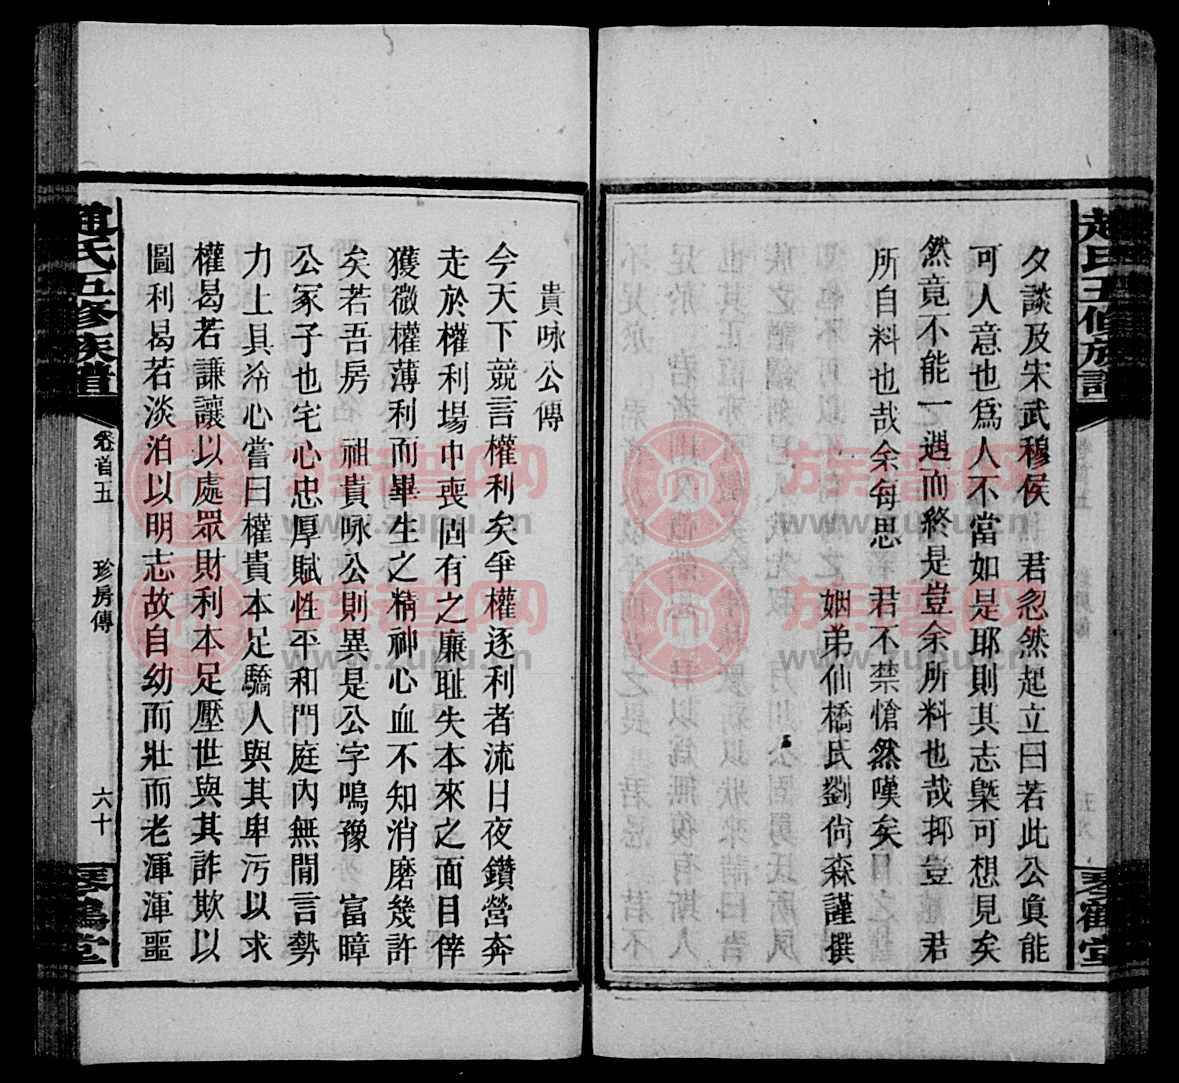 趙氏五修族譜
琴鶴堂
夕談及宋武穆侯　君忽然起立曰若此公眞能
可人意也爲人不當如是耶則其志槩可想見矣
然竟不能一遇而終是豈余所料也哉抑豈　君
所自料也哉余每思　君不禁愴然嘆矣
姻弟仙橋氏劉尙森謹撰
貴咏公傳
今天下競言權利矣爭權逐利者流日夜鑽營奔
走於權利場中喪固有之廉耻失本來之面目倖
獲微權薄利而畢生之精神心血不知消磨幾許
矣若吾房　祖貴咏公則異是公字鳴豫　富暲
公冢子也宅心忠厚賦性平和門庭內無閒言勢
力上具冷心嘗曰權貴本足驕人與其卑污以求
權曷若謙讓以處眾財利本足壓世與其詐欺以
圖利曷若淡泊以明志故自幼而壯而老渾渾噩
趙氏五修族譜
卷首五
珍房傳
六十
琴鶴堂
族譜网
www.zupu.cn
族譜网
www.zupu.cn
族譜网
www.zupu.cn
族譜网
www.zupu.cn